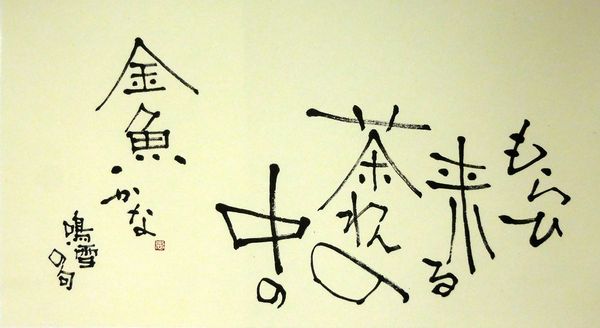 もらひ
来る
茶わんの
中の
金魚かな
鳴雪
の句